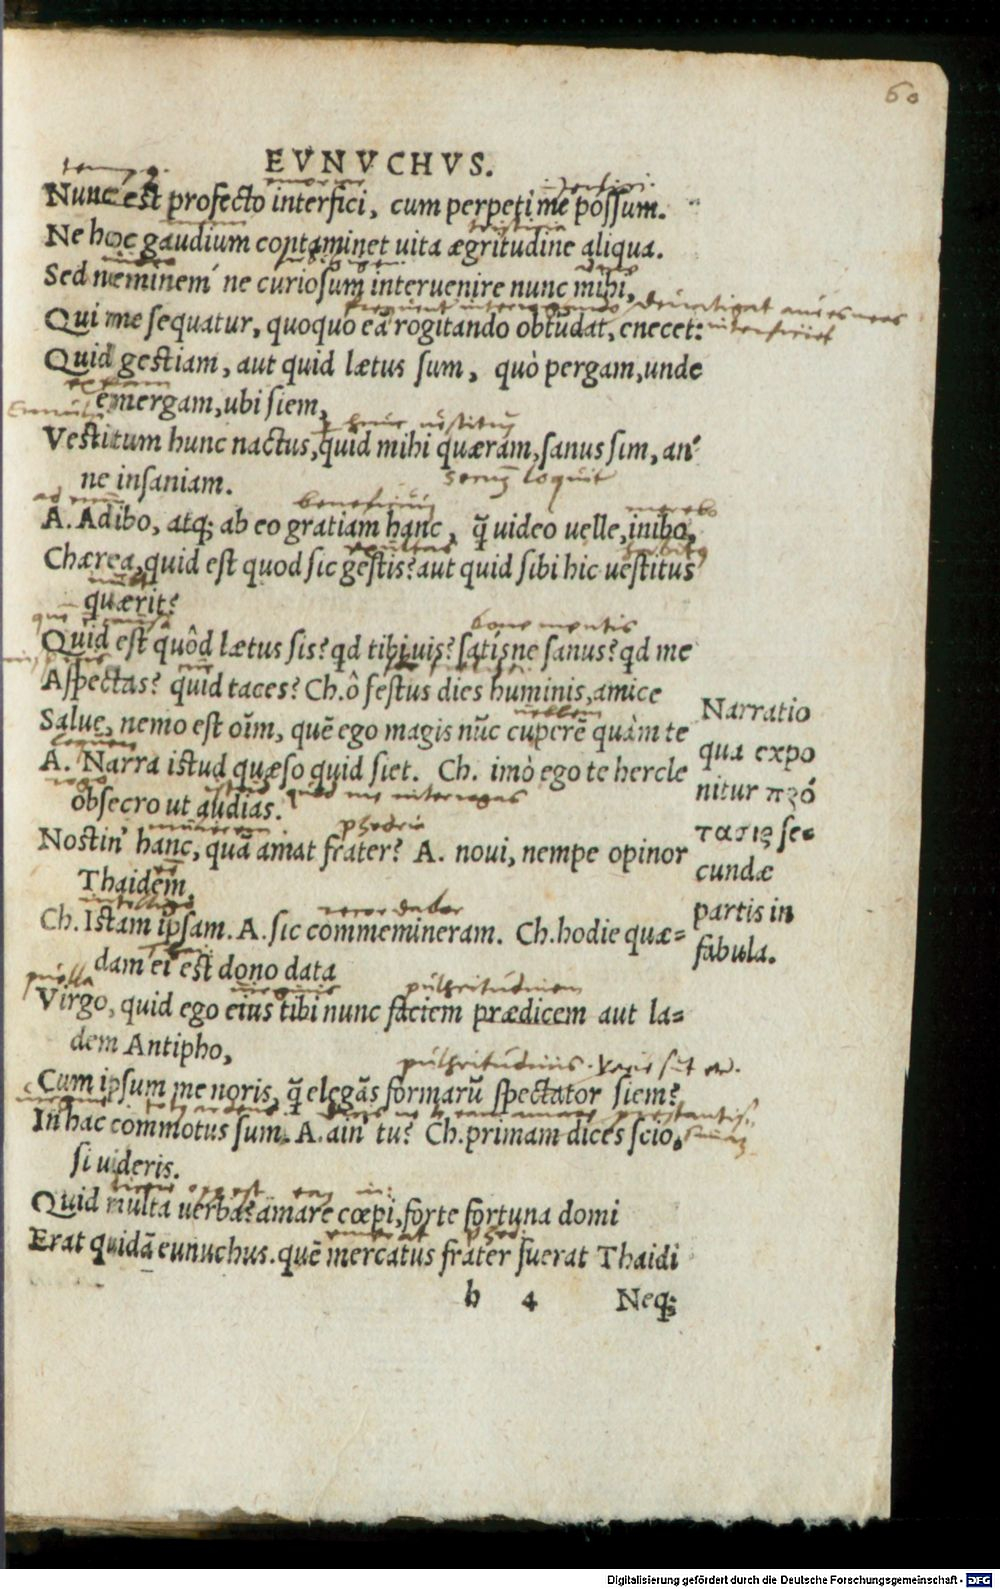 60
EVNVCHVS.
Nunc est profecto interfici, cum perpeti me possum.
Ne hoc gaudium contaminet uita ægritudine aliqua.
Sed neminem´ ne curiosum interuenire nunc mihi,
Qui me sequatur, quoquo eā rogitando obtūdat, enecet:
Quid gestiam, aut quid lætus sum, quò pergam, unde
emergam, ubi siem,
Vestitum hunc nactus, quid mihi quæram, sanus sim, an'
secum loquitur
ne insaniam.
beneficium
A. Adibo, atq; ab eo gratiam hanc, q̃ uideo uelle, inibo,
Chærea, quid est quod sic gestis? aut quid sibi hic uestitus
quærit?
bone mentis
Quid est quôd lætus sis? qd tibi uis? satisne sanus? qd me
Aspectas? quid taces? Ch. ô festus dies huminis, amice
uellem
Salue, nemo est oīm, quē ego magis nūc cuperē quàm te
A. Narra istud quæso quid siet. Ch. imò ego te hercle
quod me interrogas
obsecro ut audias.
phedria
Nostin' hanc, quā amat frater? A. noui, nempe opinor
Thaidem,
recordabor
Ch. Istam ipsam. A. sic commemineram. Ch. hodie quæ=
dam ei est dono data
puella virginis pulhritudinem
Virgo, quid ego eius tibi nunc faciem prædicem aut la=
dem Antipho,
pulhritudinis
Cum ipsum me noris, q̃ elegās formarū spectator siem?
In hac commotus sum. A. ain' tu? Ch. primam dices scio,
si uideris.
Quid multa uerba? amare cœpi, forte fortuna domi
emerat phed.
Erat quidā eunuchus. quē mercatus frater fuerat Thaidi
b 4 Neq;
Narratio
qua expo
nitur πρό
τασις se=
cundæ
partis in
fabula.
Digitalisierung gefördert durch die Deutsche Forschungsgemeinschaft - DFG